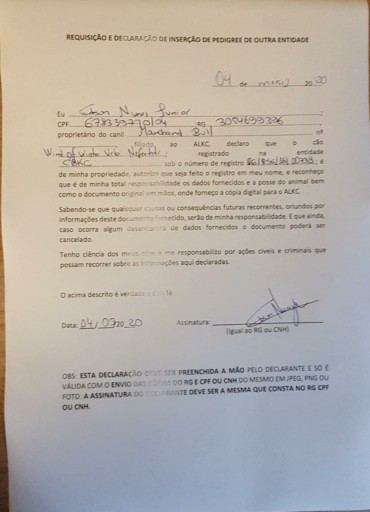 REQUISIÇÃO E DECLARAÇÃO DE INSERÇÃO DE PEDIGREE DE OUTRA ENTIDADE
04 de março 2020
Eu Edson Nunes Junior,
CPF RG
proprietário do canil Marchand Bull nº
filiado ao ALKC, declaro que o cão
registrado na entidade
CBKC sob o número de registro é
de minha propriedade, autorizo que seja feito o registro em meu nome, e reconheço
que é de minha total responsabilidade os dados fornecidos e a posse do animal bem
como o documento original em mãos, onde forneço a cópia digital para o ALKC.
Sabendo-se que quaisquer custos ou consequências futuras recorrentes, oriundos por
informações deste documento fornecido, serão de minha responsabilidade. E que ainda,
caso ocorra algum de dados fornecidos o documento poderá ser
cancelado.
Tenho ciência dos meus atos e me responsabilizo por ações cíveis e criminais que
possam recorrer sobre as informações aqui declaradas.
O acima descrito é verdade e dou fé
Data: 04/03/2020 Assinatura:
(Igual ao RG ou CNH)
OBS: ESTA DECLARAÇÃO DEVE SER PREENCHIDA A MÃO PELO DECLARANTE E SÓ É
VÁLIDA COM O ENVIO DAS CÓPIAS DO RG E CPF OU CNH DO MESMO EM JPEG, PNG OU
FOTO. A ASSINATURA DO DECLARANTE DEVE SER A MESMA QUE CONSTA NO RG CPF
OU CNH.